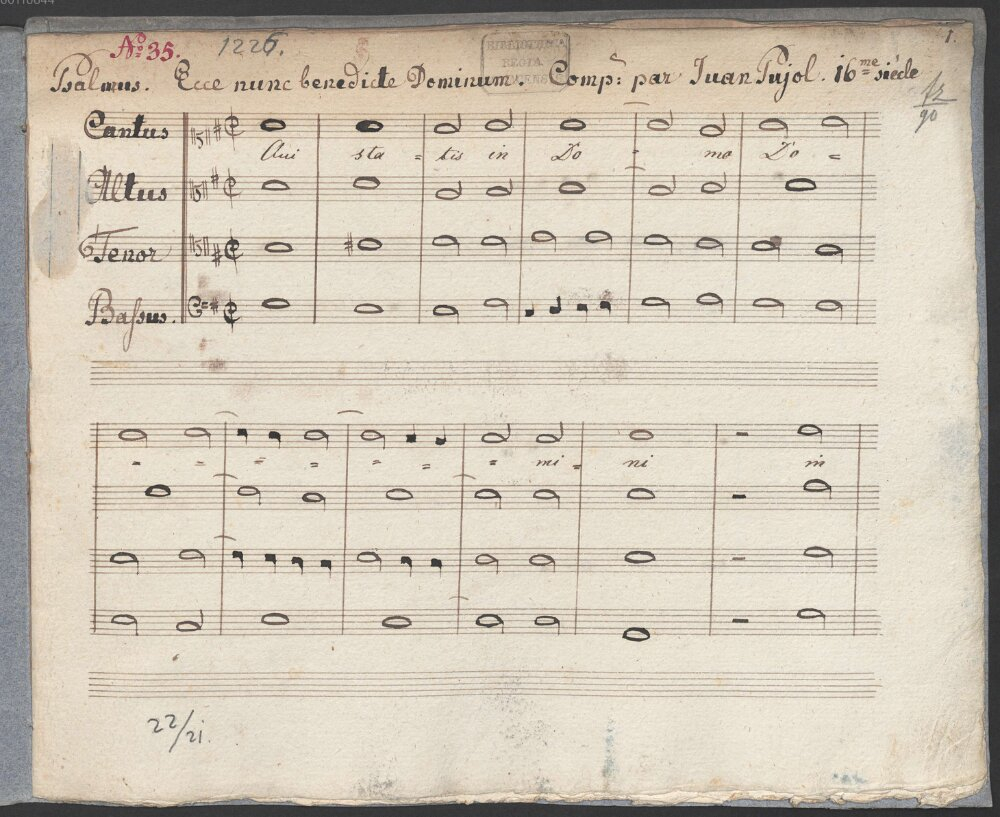 Nº 35. 1226. 1.
BIBLIOTHECA
REGIA
MONACENSIS
Psalmus. Ecce nunc benedicte Dominum. Comp: par Juan Pujol. 16me siécle
Cantus
Qui sta = tis in Do - mo Do =
Altus
Tenor
Bassus.
= = = = = = = mi = ni in
22/21.